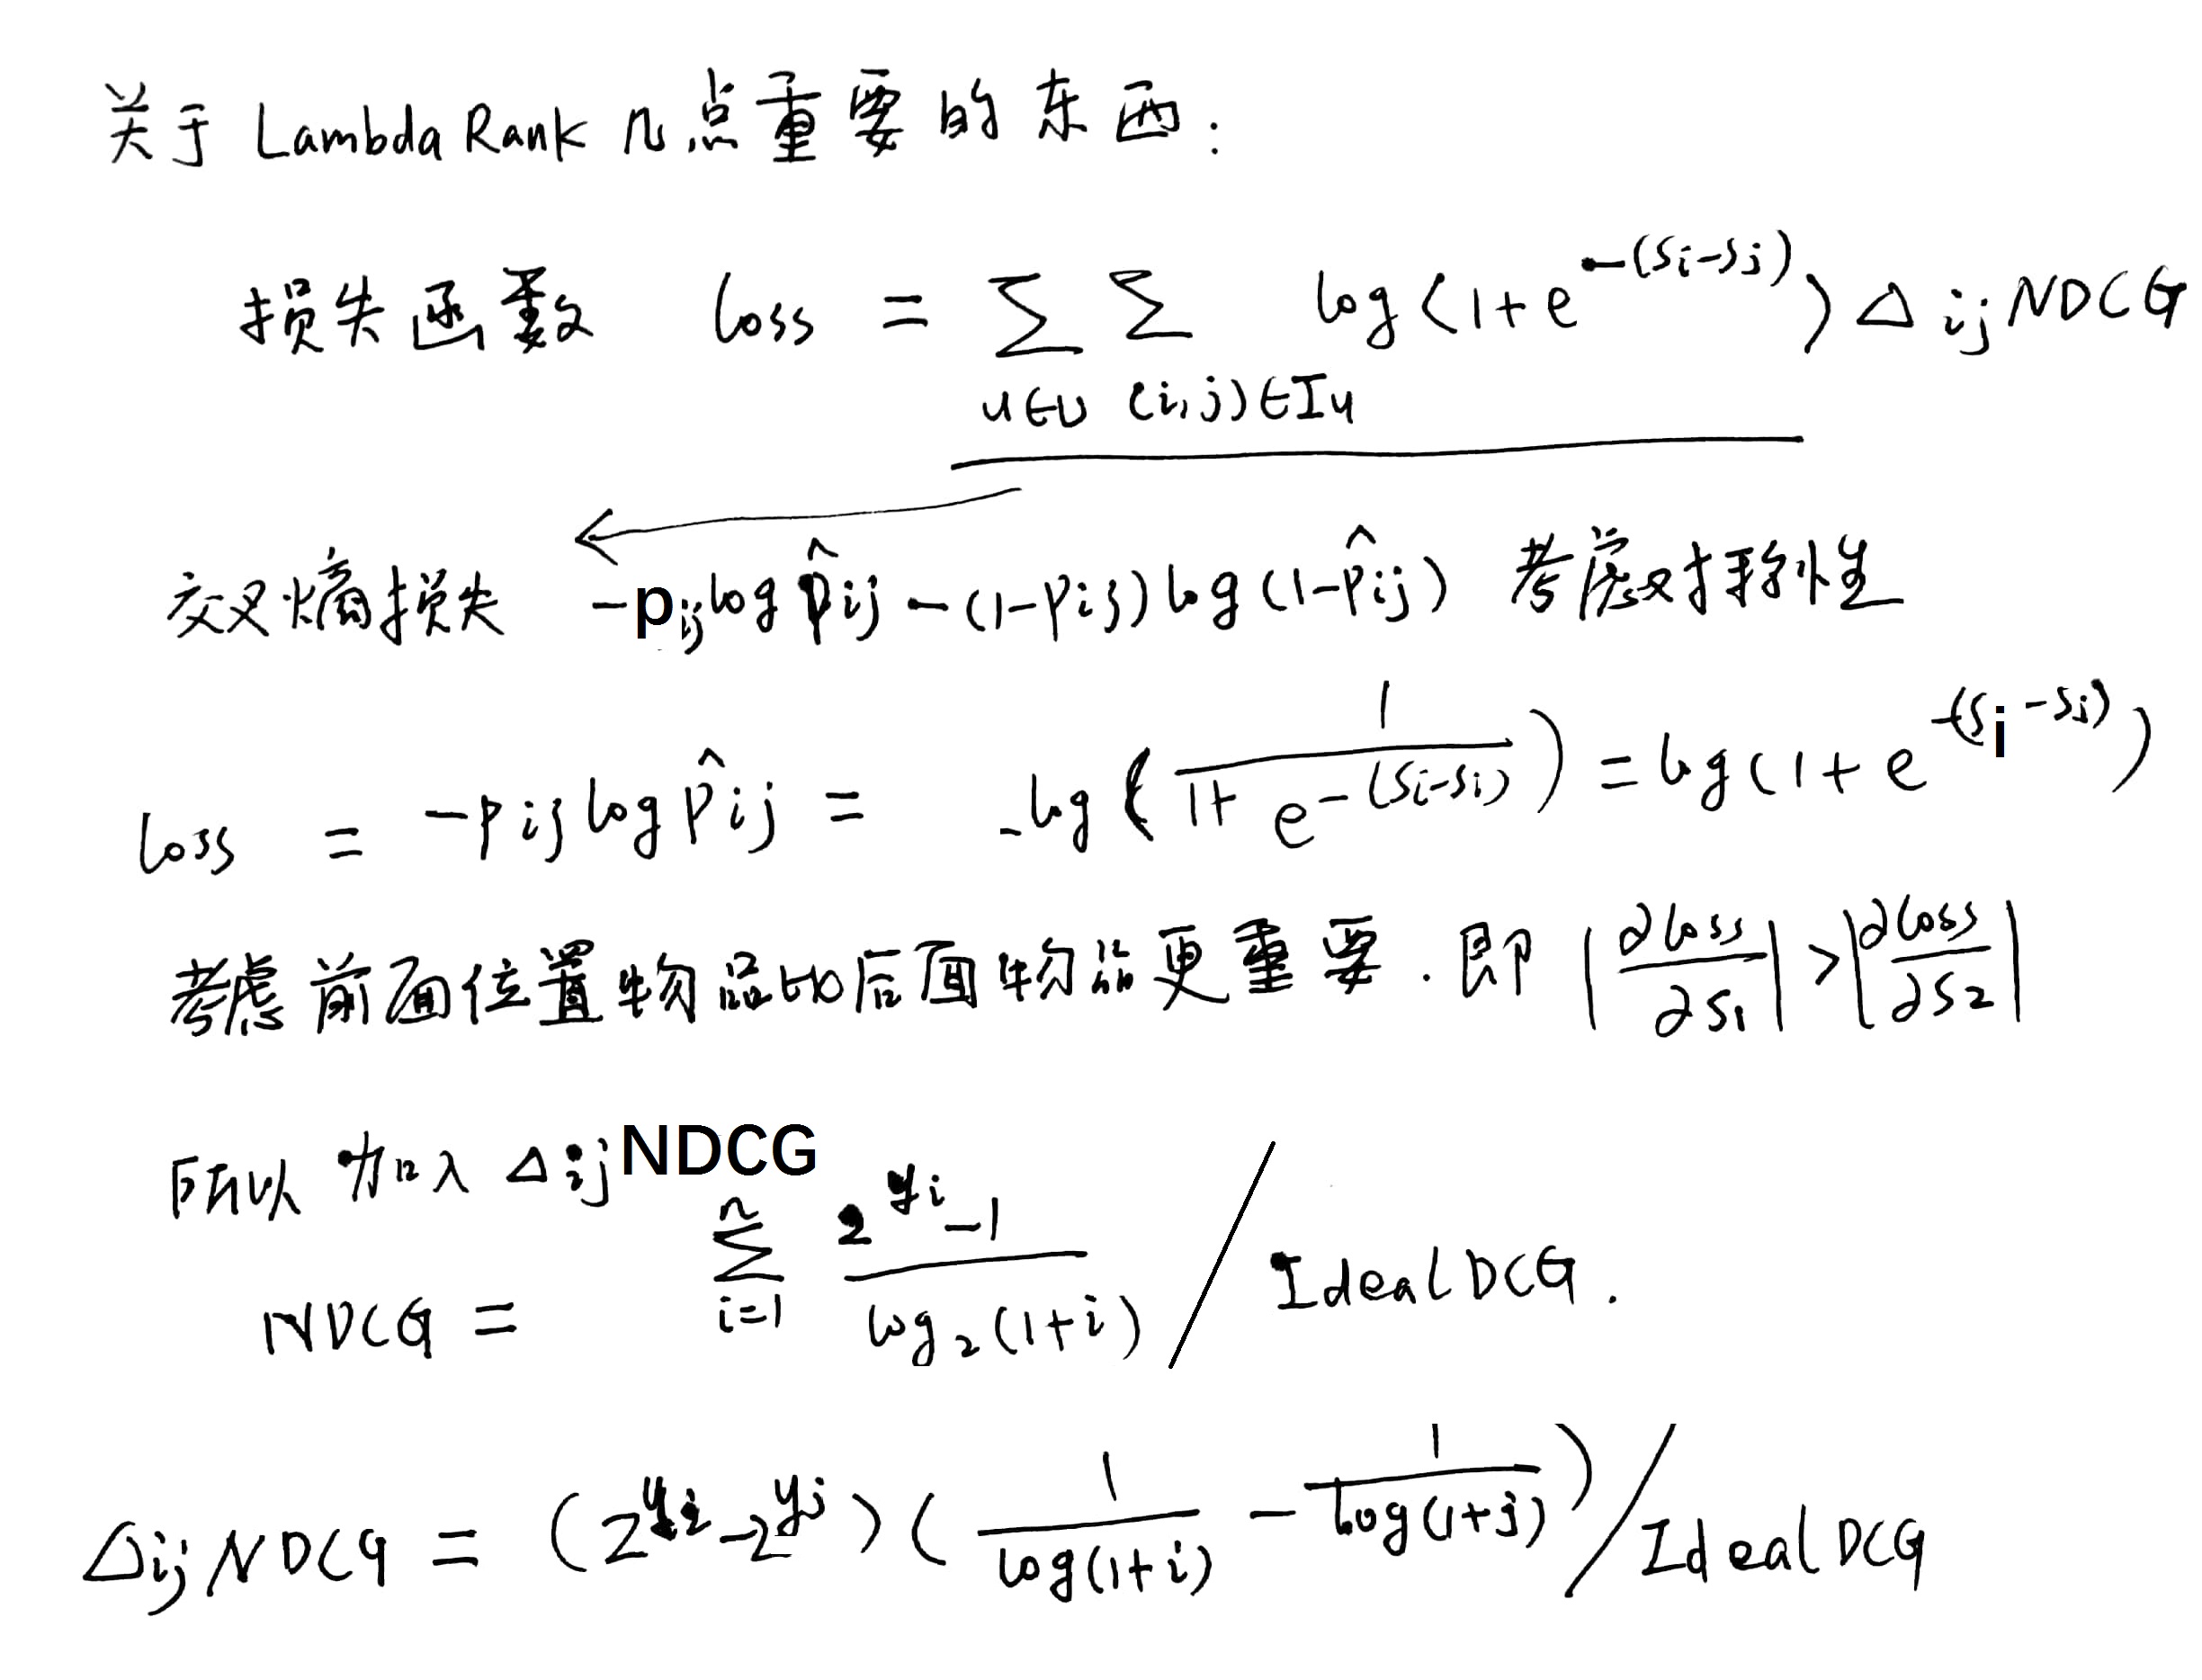 关于 LambdaRank 几点重要的东西：
损失函数 loss = ∑_{u∈U} ∑_{(i,j)∈Iu} log(1+e^{-(si-sj)}) Δij NDCG
交叉熵损失 -pij log p̂ij - (1-pij) log(1-p̂ij) 考虑对称性
loss = -pij log p̂ij = -log(1/(1+e^{-(si-si)})) = log(1+e^{-(si-sj)})
考虑前面位置物品比后面物品更重要．即 |∂loss/∂s1| > |∂loss/∂s2|
所以加入 Δij NDCG
NDCG = ∑_{i=1}^{n} (2^{yi}-1)/log2(1+i) / IdealDCG.
Δij NDCG = (2^{yi}-2^{yj})(1/log(1+i) - 1/log(1+j)) / IdealDCG